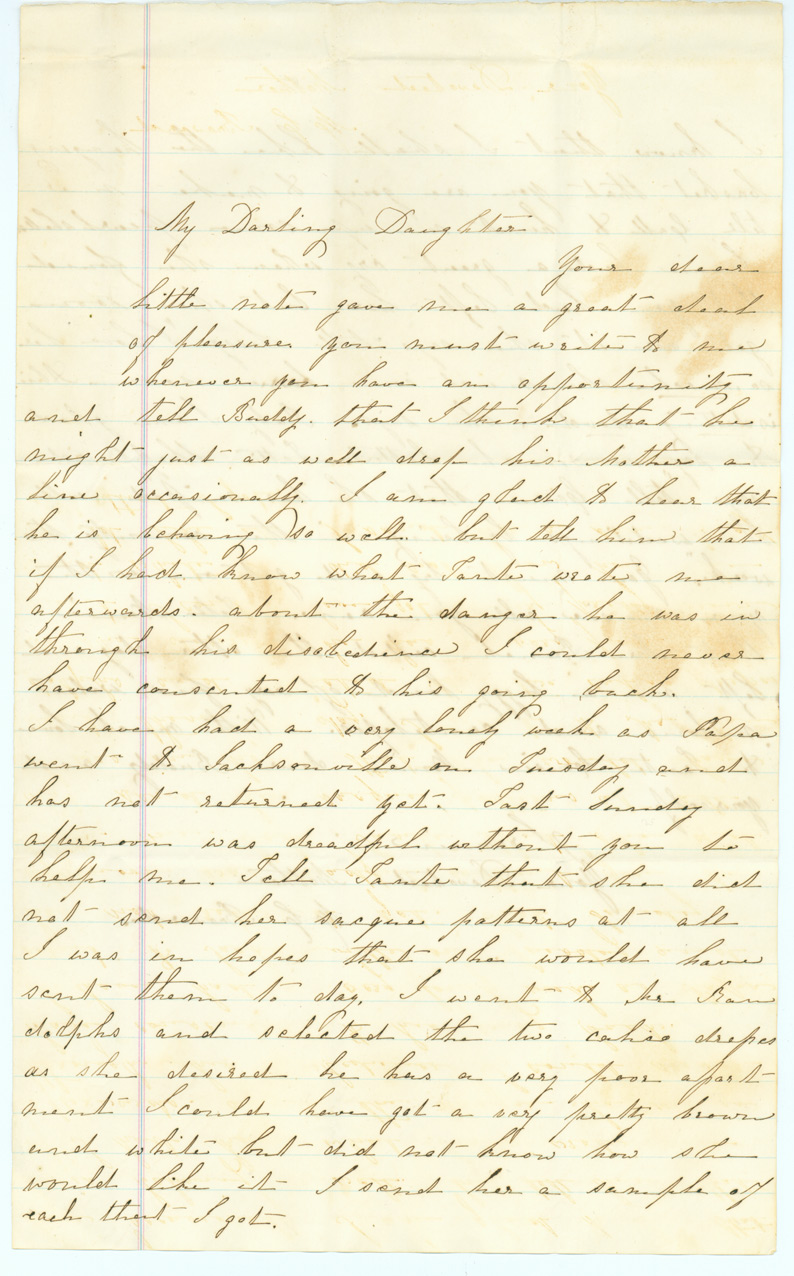 My Darling Daughter
Your dear
little note gave me a great deal
of pleasure you must write to me
whenever you have an opportunity
and tell Buddy. that I think that he
might just as well drop his Mother a
line occasionally. I am glad to hear that
he is behaving so well. but tell him that
if I had know what Tante wrote me
afterwards. about the danger he was in
through his disobedience I could never
have consented to his going back.
I have had a very lonely week as Papa
went to Jacksonville on Tuesday and
has not returned yet. Last Sunday
afternoon was dreadful without you to
help me. Tell Tante that she did
not send her sacque patterns at all
I was in hopes that she would have
sent them to day. I went to Mr Ran
dolphs and selected the two calico dresses
as she desired he has a very poor apart
ment I could have got a very pretty brown
and white but did not know how she
would like it I send her a sample of
each that I got.